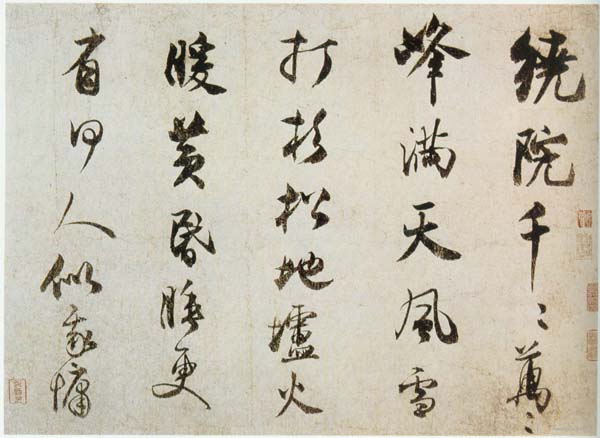 繞院千〻萬〻
峰滿天風雪
打杉松地壚火
暖黃昏睡更
有何人似我慵